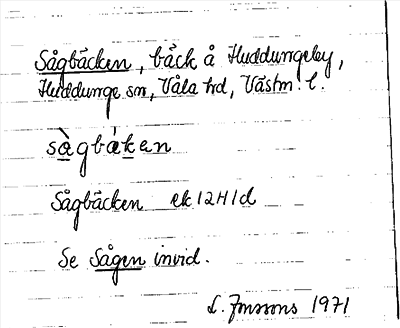 Sågbäcken, bäck å Huddungeby,
Huddunge sn, Våla hd, Västm. l.
sàgbáken
Sågbäcken ek 12H1d
Se Sågen invid.
L. Jonsons 1971